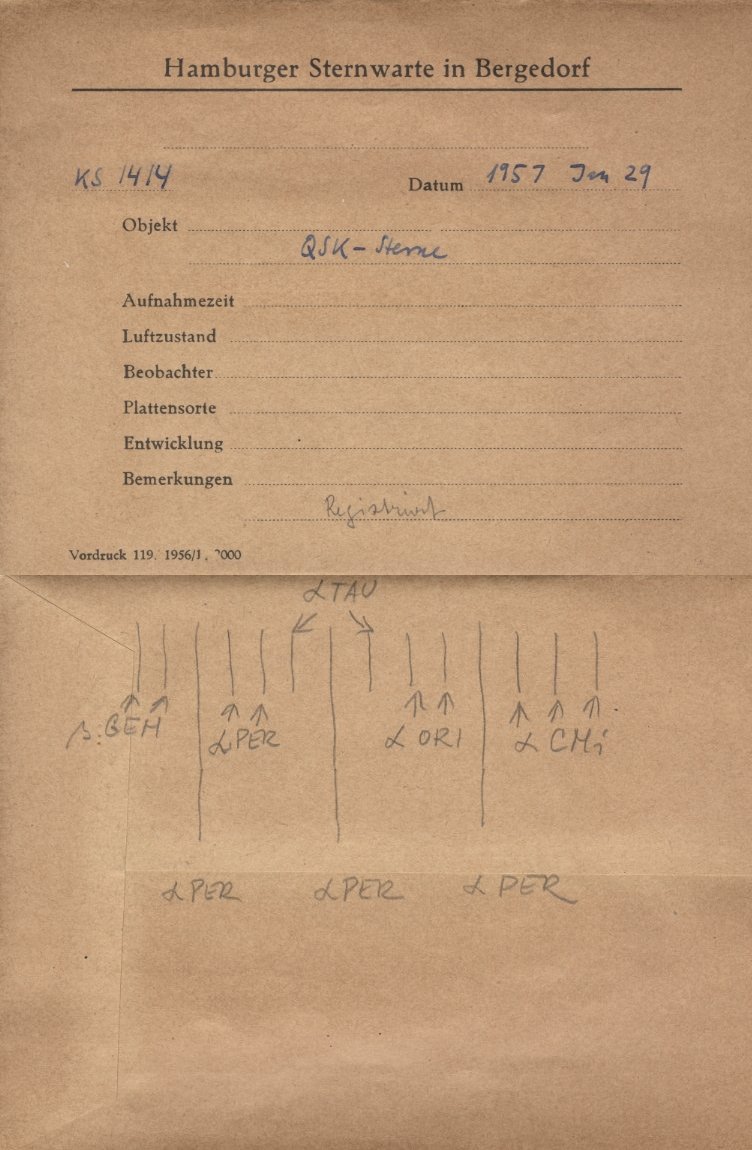 Hamburger Sternwarte in Bergedorf
KS 1414 Datum 1957 Jan 29
Objekt
QSK-Sterne
Aufnahmezeit
Luftzustand
Beobachter
Plattensorte
Entwicklung
Bemerkungen
Registriert
Vordruck 119. 1956/1. 2000
α TAU
β GEM α PER α ORI α CMi
α PER α PER α PER